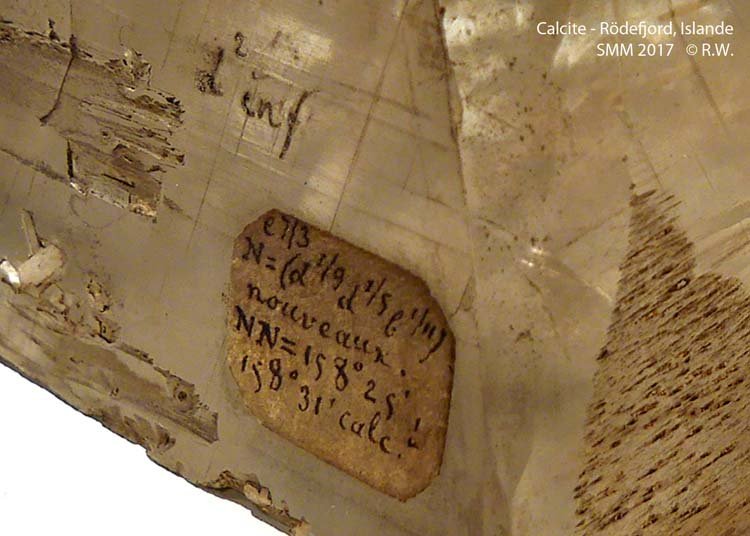 Calcite - Rödefjord, Islande
SMM 2017 © R.W.
d² 
inf
e7/3
N=(d1/9 d1/5 b1/11)
nouveaux.
NN=158° 25' à
158° 31' calc.